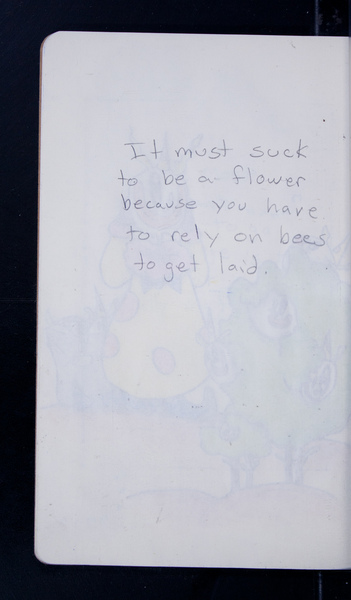 It must suck
to be a flower
because you have
to rely on bees
to get laid.